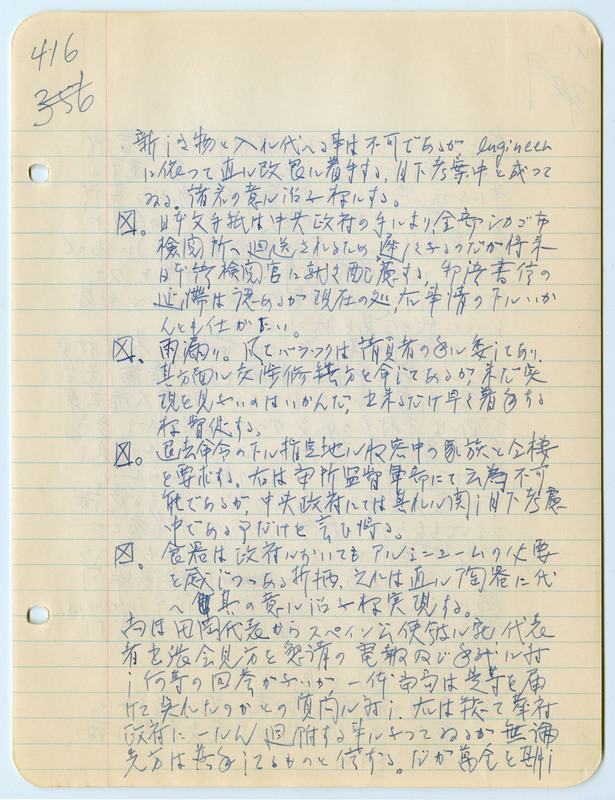 416
356
新しき物と入れ代へる事は不可であるが engineer
に依つて直に改良に着手する、目下考案中と成つて
ゐる。諸君の意に沿ふ様にする。
四. 日本文手紙は中央政府の手により、全部シカゴ市
検閲所へ廻送されるため、遅くなるのだが将来
日本語検閲官に就き配慮する。郵送書信の
延滞は認めるが現在の処、右事情の下にいか
んとも仕がたい。
五. 雨漏り。凡てバラックは請負者の手に委してあり、
其方面に交渉修繕方を命じてあるが、未だ実
現を見ないのはいかんだ、出来るだけ早く着手する
様督促する。
六. 退去命令の下に指定地に収容中の家族と合棲
を要求する。右は当所監督軍部にて云為不可
能であるが、中央政府にては具れに関し目下考慮
中である事だけを言ひ得る。
七. 食器は政府に於いてもアルミニュームの必要
を感じつつある折柄、之れは直に陶器に代
へ其の意に沿ふ様実現する。
尚ほ田岡代表からスペイン公使館に宛代表
者を派会見方を懇請の電報及び手紙に対
し何等の回答がないが、一体当局は是等を届
けて呉れたのかとの質問に対し、右は総て華府
政府に一たん廻附する事になつてゐるが無論
先方は落手してるものと信ずる。だが萬全を期し